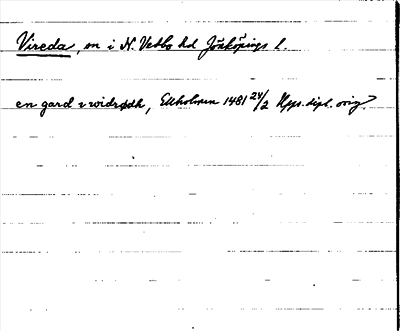 Vireda, sn i N. Vedbo hd Jönköpings l.
en gard i widræk, Ekholmen 1481 24/2 Upps. dipl. orig.